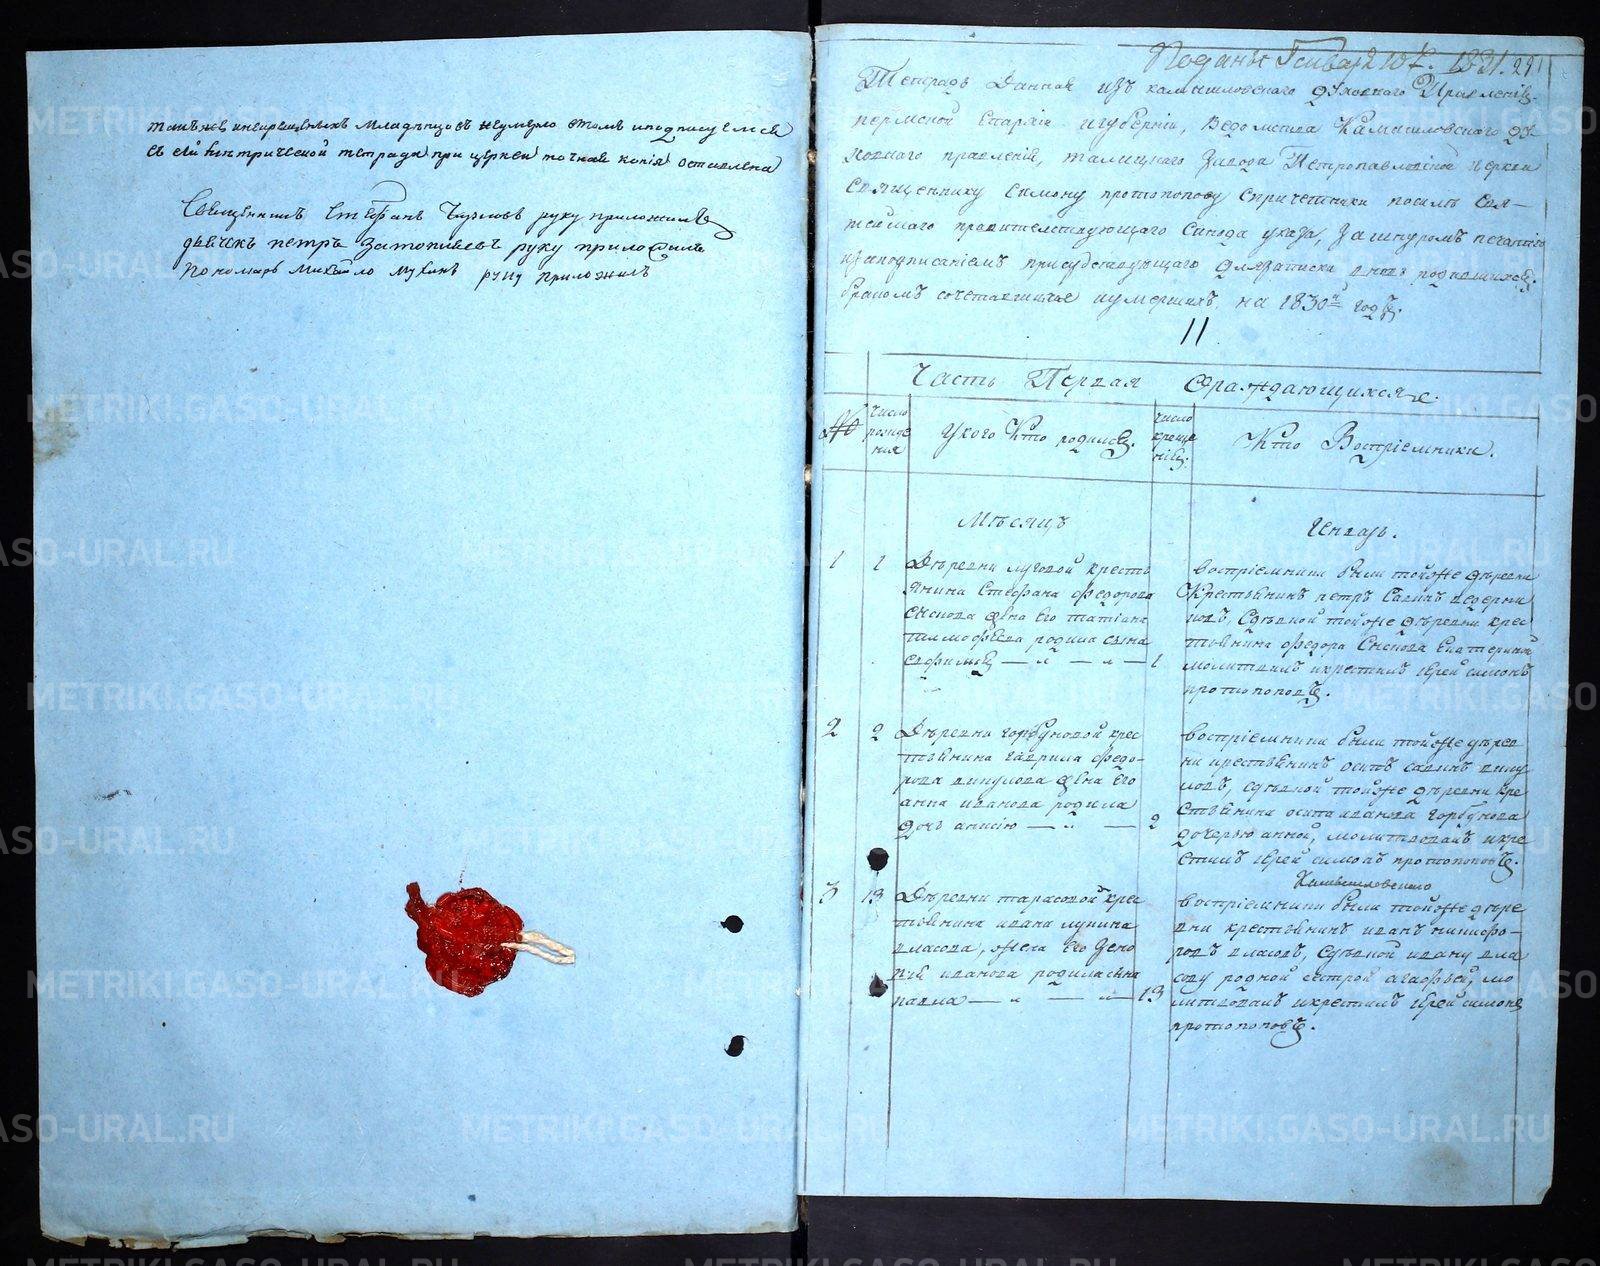 такъ же некрещеныхъ младенцовъ неумерло втомъ и подписуемся
съ сей метрической тетради при церкви точная копія оставлена
Священникъ Стефанъ руку приложилъ
дьячекъ петръ руку приложилъ
пономарь Михайло Мухинъ руку приложилъ
Поданы Генваря 10. 1831. 291
Тетрадь Данная изъ камышловскаго духовнаго Правленія
пермской Епархіи игуберніи, Ведомства Камышловскаго ду
ховнаго правленія, талицкаго Завода Петропавловской церкви
священнику симону протопопову спричетники посилѣ свя-
тейшаго правителствующаго Синода указа, зашнуромъ печатію
иподписаніемъ присудствующаго длязаписки внее родившихся
бракомъ сочетавшихся иумершихъ на 1830й годъ.
11
Часть Первая ораждающихся.
№
число рожде ния
Укого Кто родился.
число креще ніѧ.
Кто Востріемники.
Мѣсяцъ
Генварь.
1 1 Дѣревни луговой кресть
янина Стефана федорова
жѣна Его татіана
тимофѣева родила сына
1
востріемники были тойже дѣревни
Крестьянинъ петръ Савинъ ведерни
ковъ, Сдѣвкой тойже дѣревни крес
тьянина федора Екатериной
молитвилъ икрестилъ іерей симонъ
протопоповъ.
2 2 Дѣревни горбуновой крес
тьянина гаврила федо-
рова викулова жѣна Его
анна иванова родила
дочь анисію 2
востріемники были тойже дѣрев
ни крестьянинъ осипъ савинъ вику
ловъ, сдѣвкой тойже дѣревни кре
стьянина осипа иванова горбунова
дочерью анной, молитвовалъ икре
стилъ іерей симонъ протопоповъ.
3 13 Дѣревни тарасовой крес
тьянина ивана лупина
власова, жена Его Зено
вія иванова родила сына
павла 13
Камышловскаго
востріемники были тойже дѣре
вни крестьянинъ иванъ никифо-
ровъ власовъ, Сдѣвкой ивану вла
сову родной сестрой агафьей, мо
литвовалъ икрестилъ іерей симонъ
протопоповъ.
METRIKI.GASO-URAL.RU